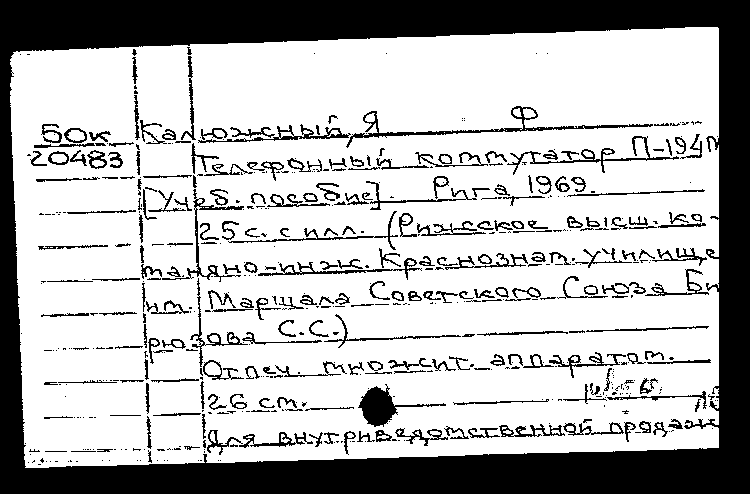 50к Калюжный, Я Ф
20483 Телефонный коммутатор П-194М
[Учеб. пособие]. Рига, 1969.
25 с. с илл. (Рижское высш. ко-
мандно-инж. Краснознам. училище
им. Маршала Советского Союза Би
рюзова С.С.)
Отпеч. множит. аппаратом.
26 см.
Для внутриведомственной продаж